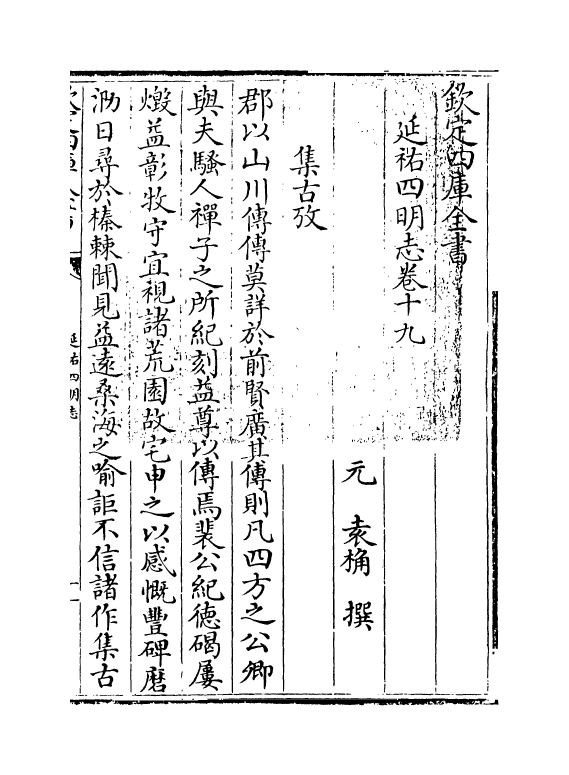 欽定四庫全書
延祐四明志卷十九
元 袁桷 撰
集古攷
郡以山川傳傳莫詳於前賢廣其傳則凡四方之公卿
與夫騷人禪子之所紀刻益尊以傳焉裴公紀徳碣屢
燬益彰牧守宜視諸荒園故宅申之以感慨豐碑磨
泐日尋於榛棘聞見益遠桑海之喻詎不信諸作集古
延祐四明志
一